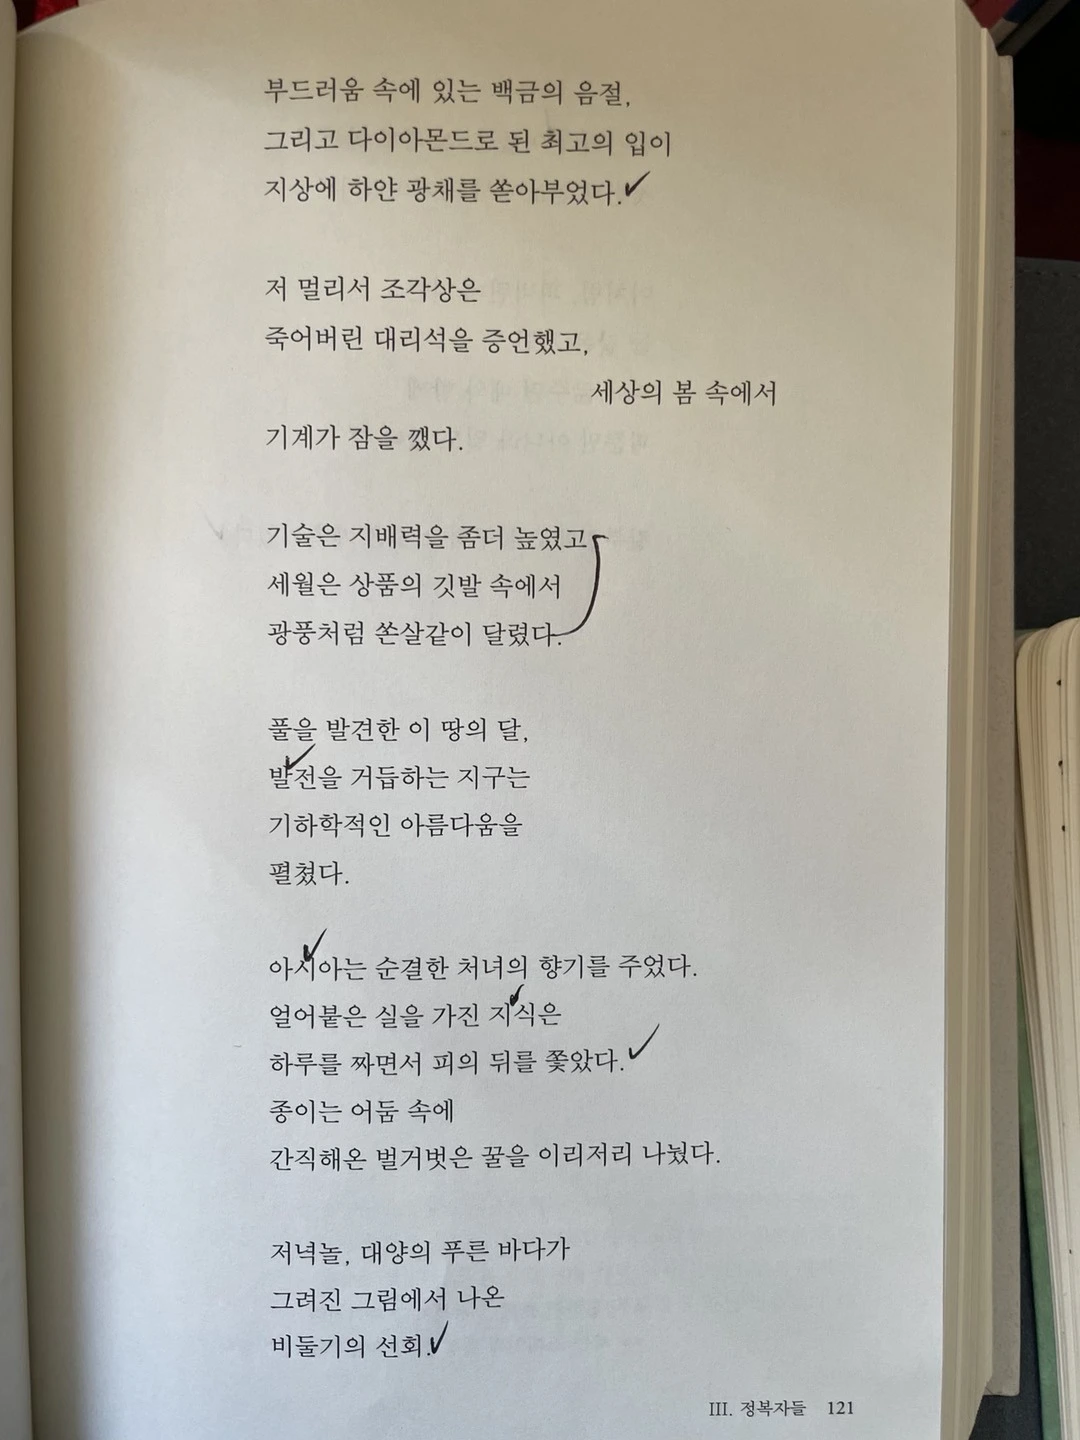 부드러움 속에 있는 백금의 음절,
그리고 다이아몬드로 된 최고의 입이
지상에 하얀 광채를 쏟아부었다.
저 멀리서 조각상은
죽어버린 대리석을 증언했고,
세상의 봄 속에서
기계가 잠을 깼다.
기술은 지배력을 좀더 높였고
세월은 상품의 깃발 속에서
광풍처럼 쏜살같이 달렸다.
풀을 발견한 이 땅의 달,
발전을 거듭하는 지구는
기하학적인 아름다움을
펼쳤다.
아시아는 순결한 처녀의 향기를 주었다.
얼어붙은 실을 가진 지식은
하루를 짜면서 피의 뒤를 쫓았다.
종이는 어둠 속에
간직해온 벌거벗은 꿀을 이리저리 나눴다.
저녁놀, 대양의 푸른 바다가
그려진 그림에서 나온
비둘기의 선회.
III. 정복자들 121